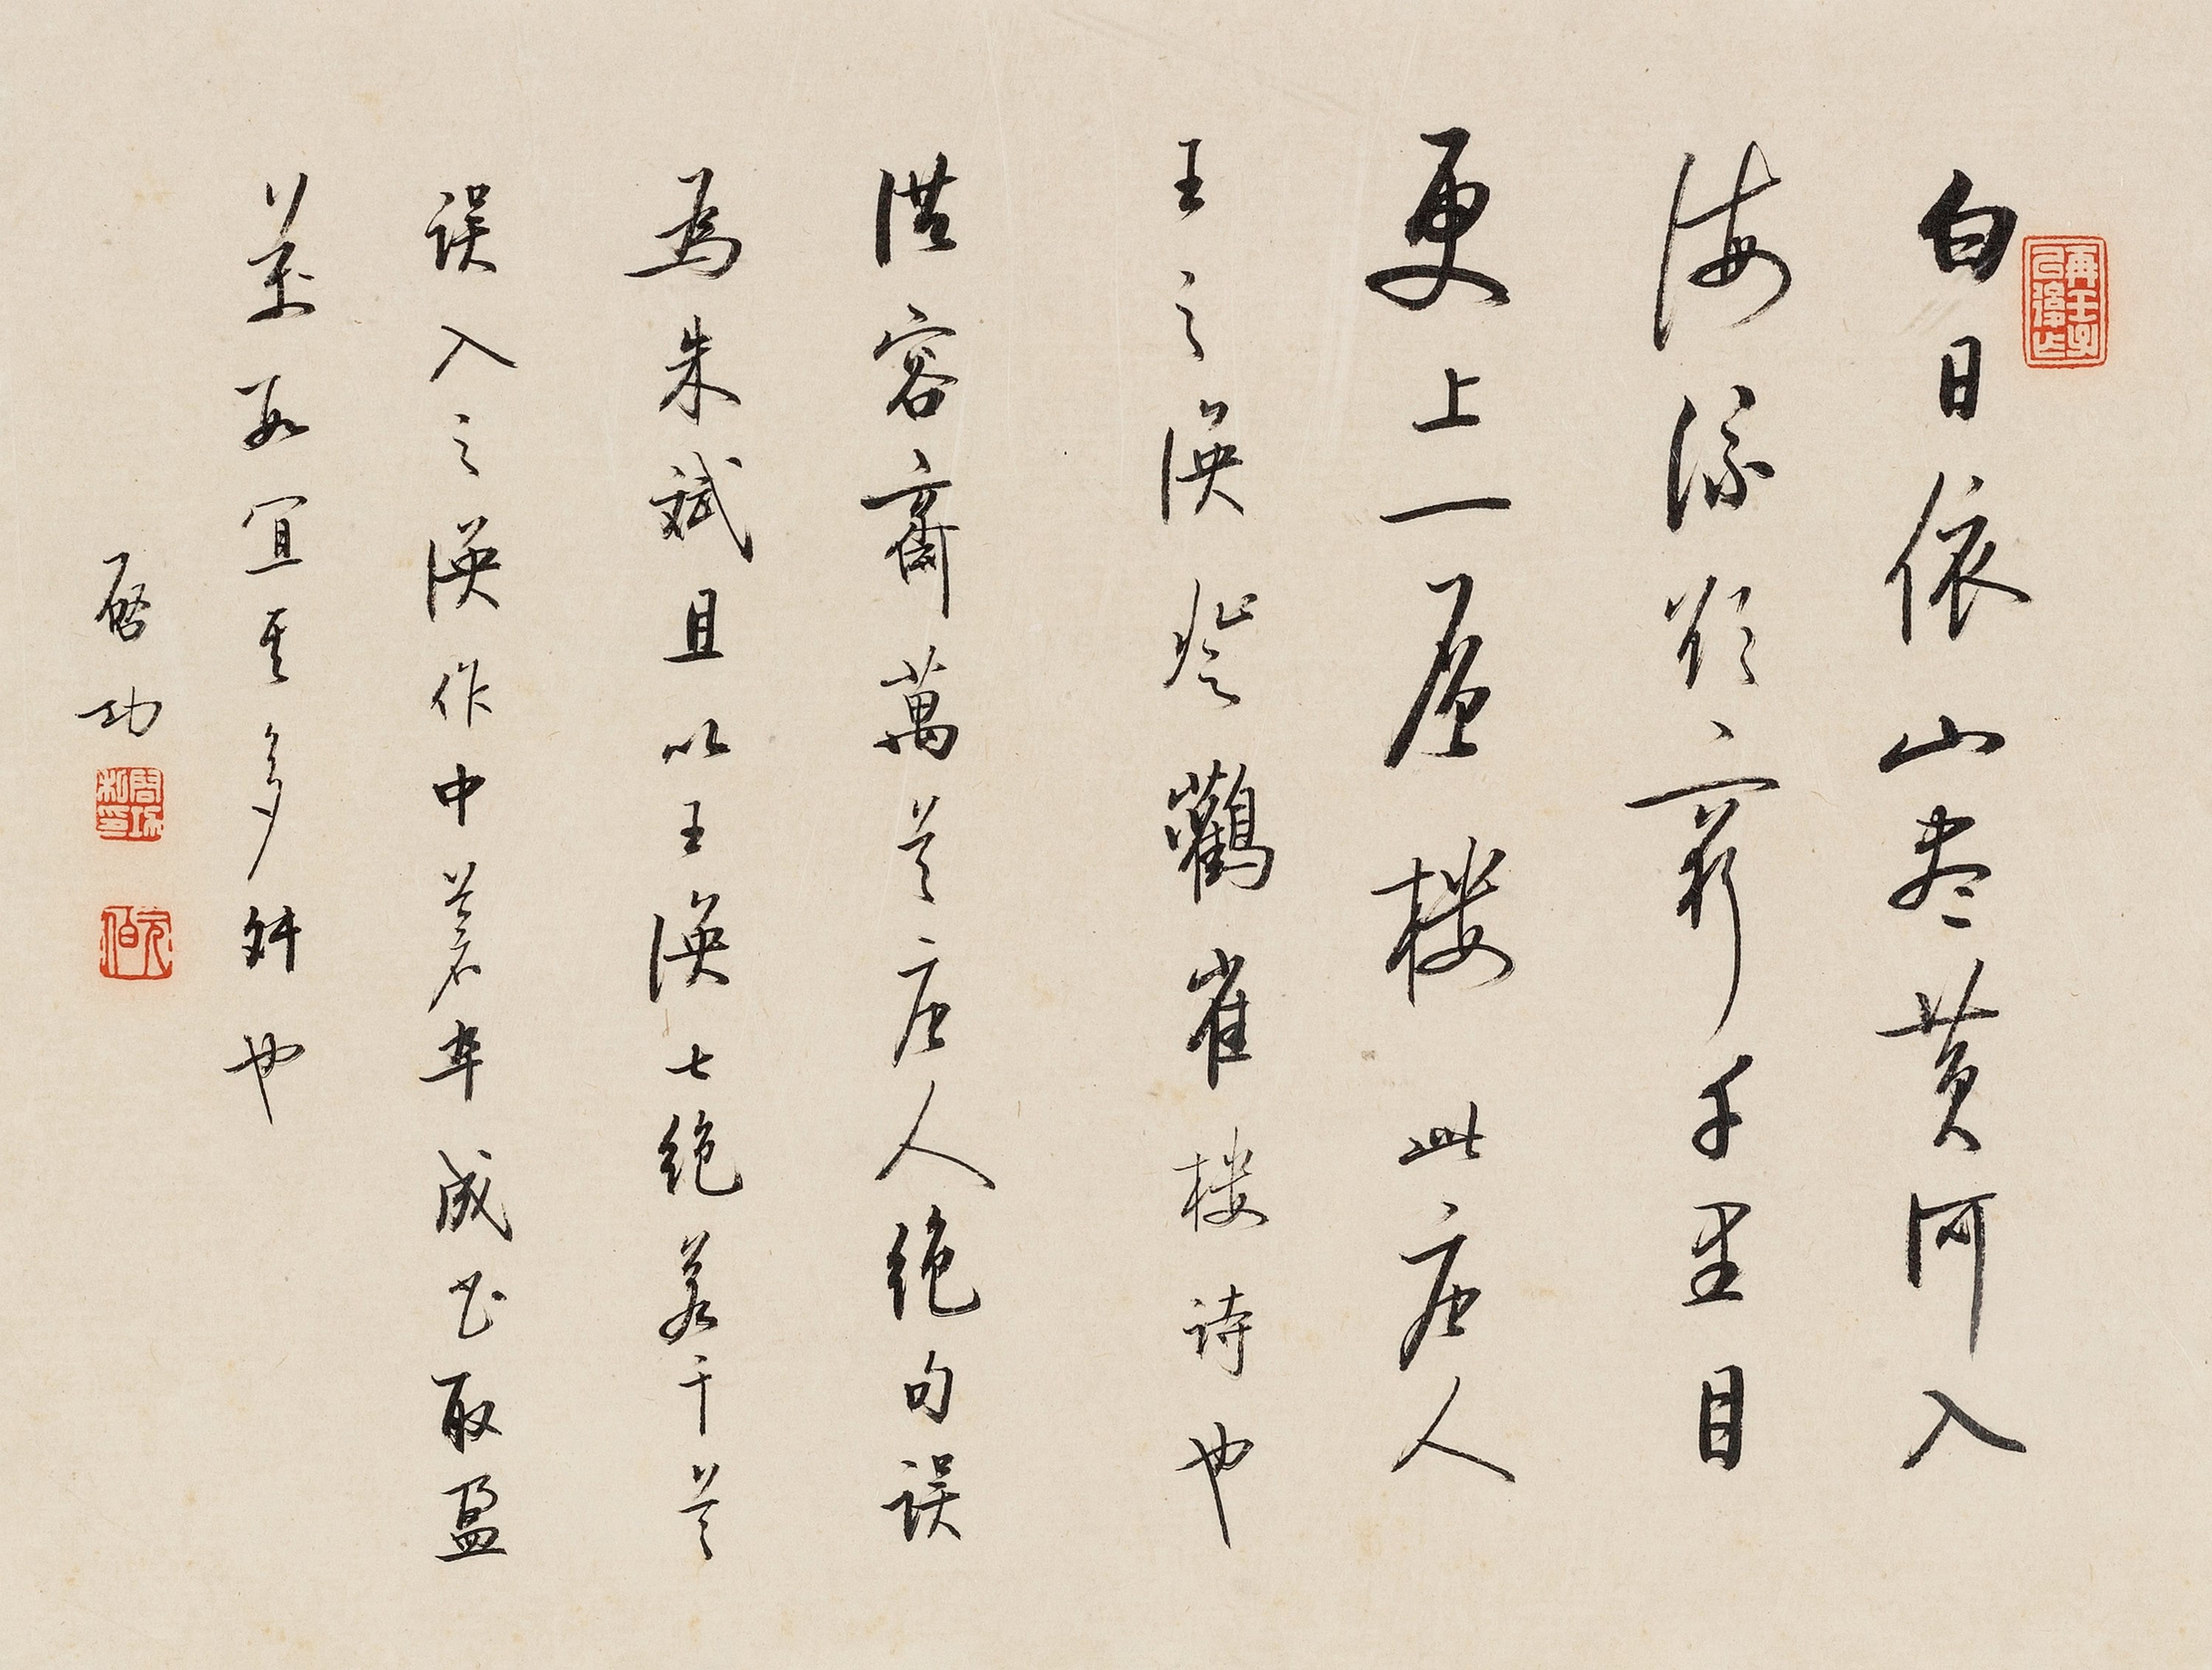 白日依山盡黃河入
海流欲窮千里目
更上一層樓此唐人
王之渙登鸛雀樓詩也
洪容齋萬首唐人絕句誤
為朱斌且以王渙七絕若干首
誤入之渙作中蓋率成書取盈
萬數宜其多舛也
啓功
啓功私印
元伯